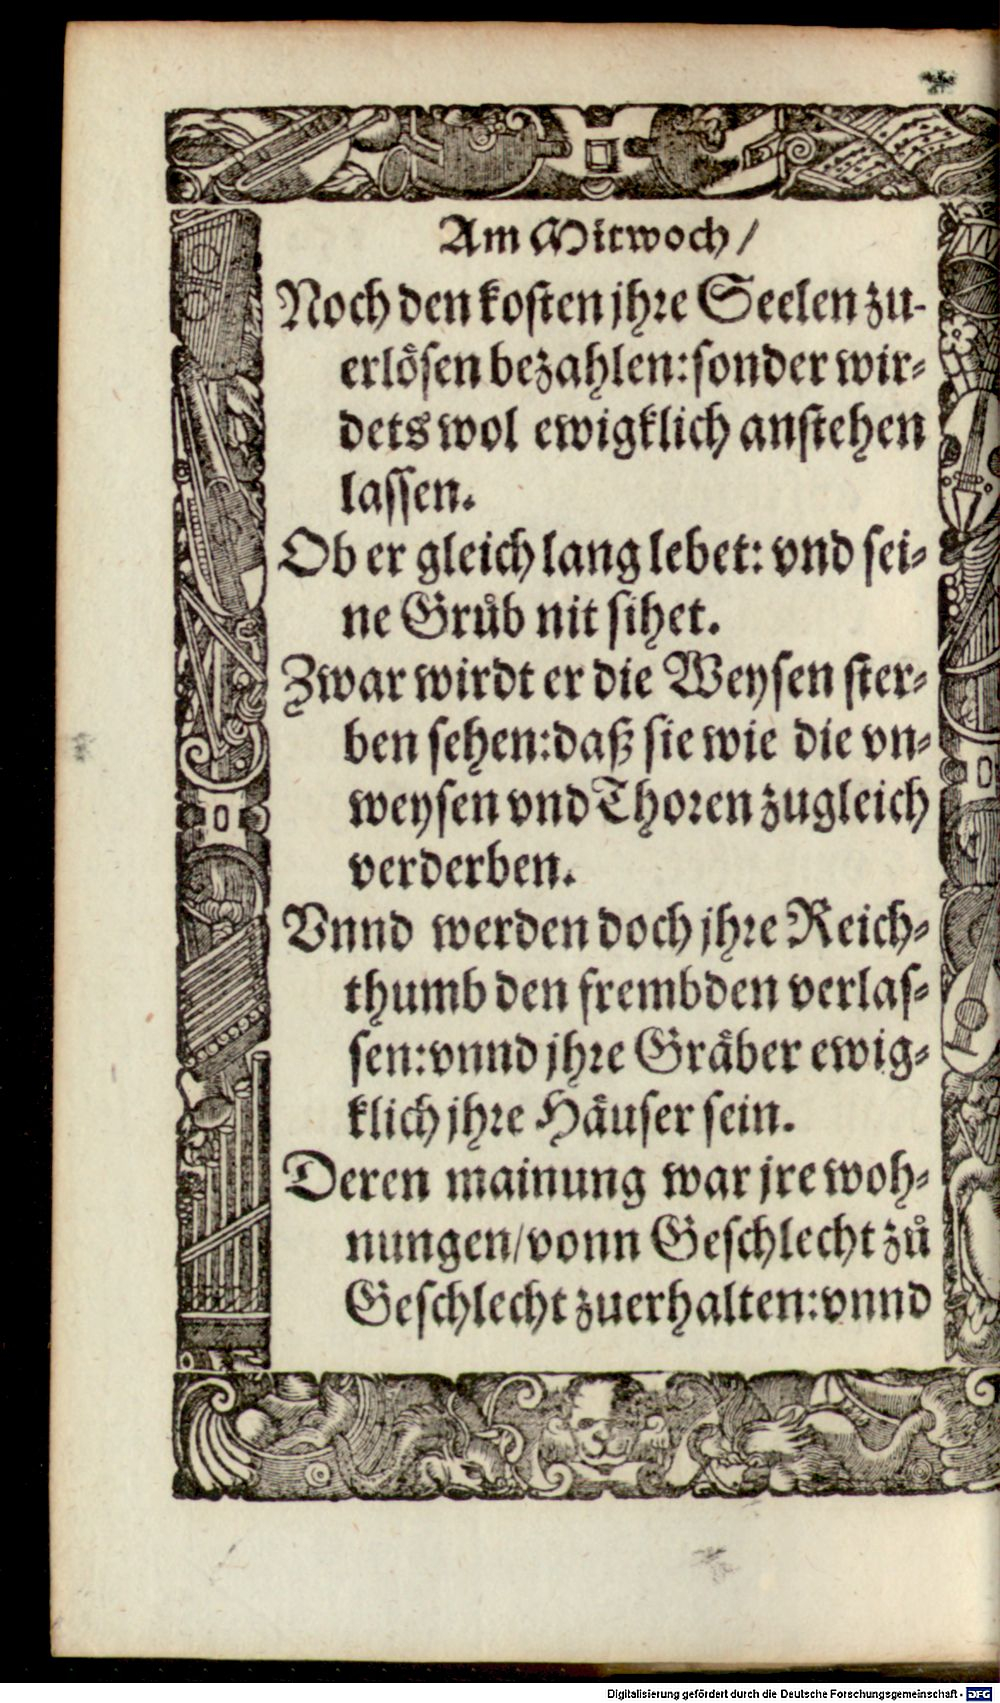 Am Mitwoch /
Noch den kosten jhre Seelen zu-
erlösen bezahlen: sonder wir-
dets wol ewigklich anstehen
lassen.
Ob er gleich lang lebet: vnd sei-
ne Grůb nit sihet.
Zwar wirdt er die Weysen ster-
ben sehen: daß sie wie die vn-
weysen vnd Thoren zugleich
verderben.
Vnnd werden doch jhre Reich-
thumb den frembden verlas-
sen: vnnd jhre Gräber ewig-
klich jhre Häuser sein.
Deren mainung war jre woh-
nungen / vonn Geschlecht zů
Geschlecht zuerhalten: vnnd
Digitalisierung gefördert durch die Deutsche Forschungsgemeinschaft - DFG